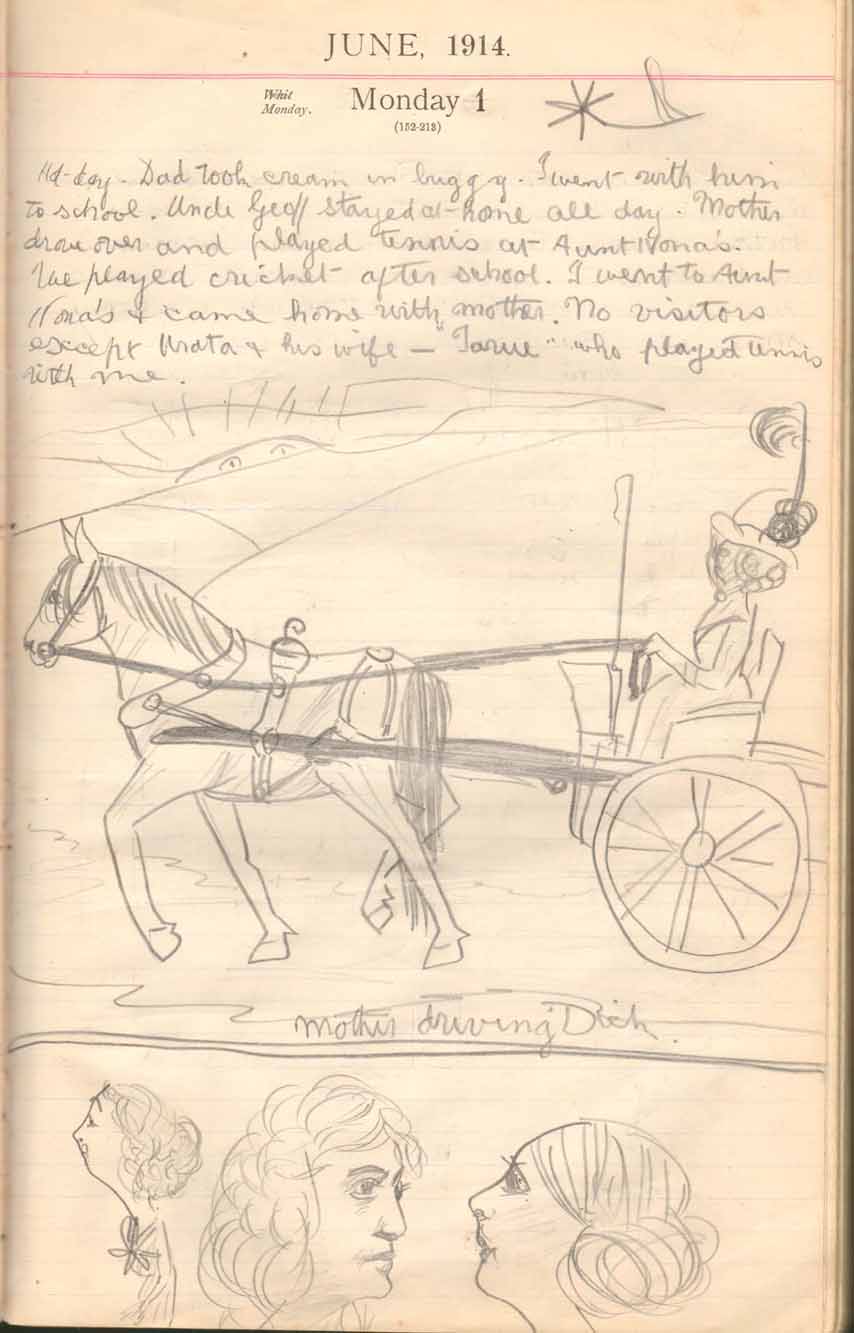 JUNE, 1914.
Whit
Monday.
Monday 1
(152-213)
Dad took cream in buggy. I went with him
to school. Uncle Geoff stayed at home all day. Mother
drove over and played tennis at Aunt Nona's.
We played cricket after school. I went to Aunt
Nona's & came home with mother. No visitors
except & his wife — " " who played tennis
with me.
Mother driving Dick.